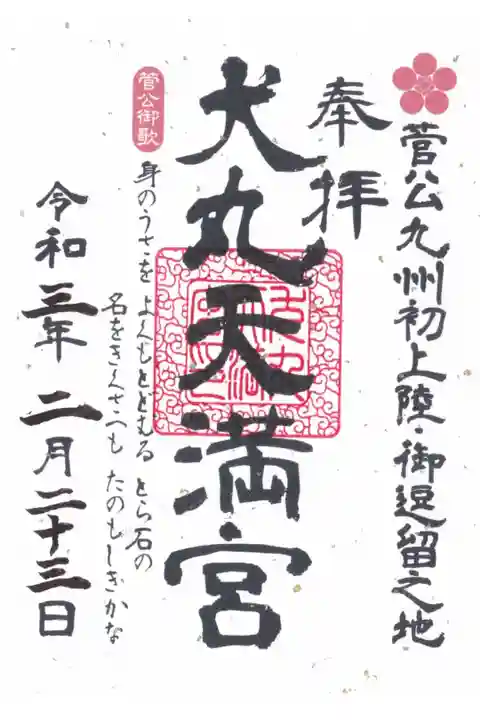 菅公九州初上陸・御逗留之地
奉拝
犬丸天満宮
菅公御歌
身のうさを よくもとどむる とら石の
名をきくさへも たのもしきかな
令和三年 二月二十三日